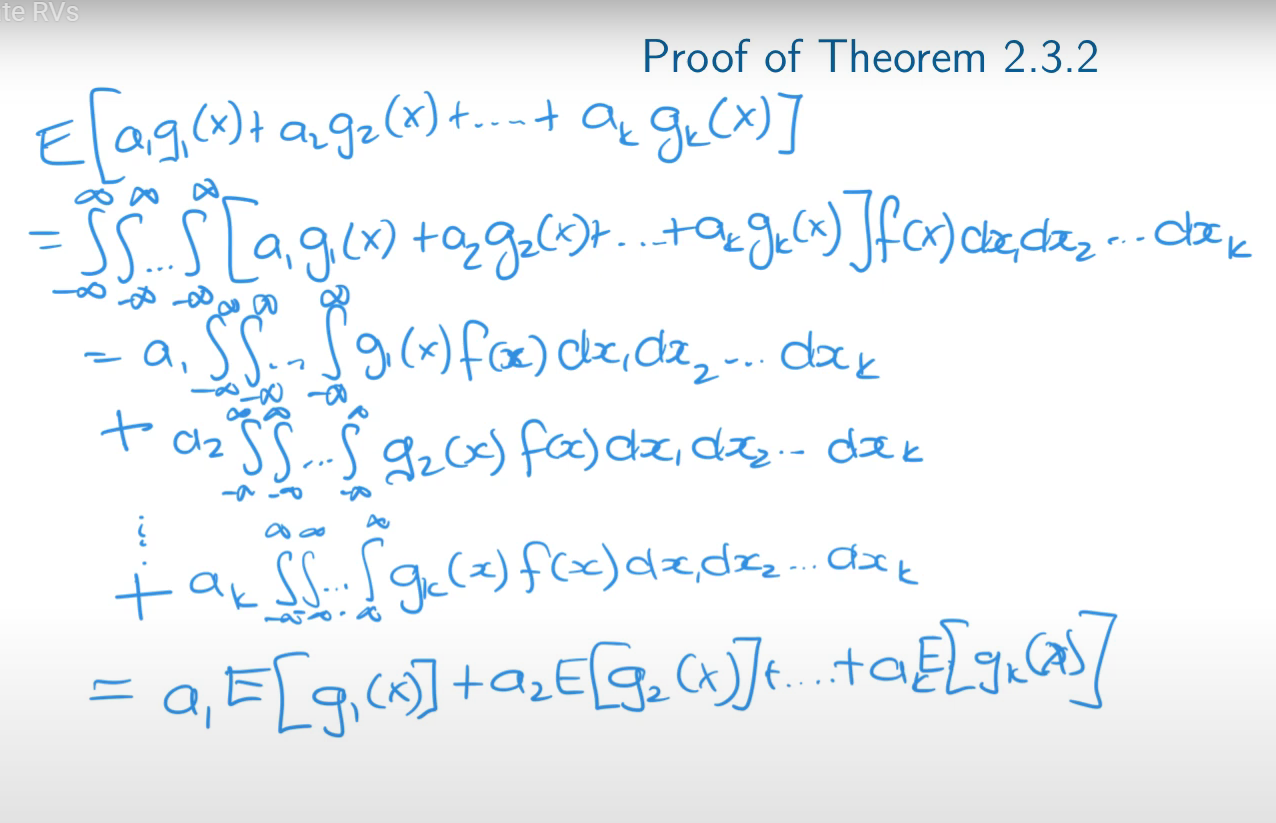 te RVs
Proof of Theorem 2.3.2
E[a₁g₁(x)+ a₂g₂(x)+....+ aₖ gₖ(x)]
= ∫_{-∞}^{∞} ∫_{-∞}^{∞} ... ∫_{-∞}^{∞} [a₁g₁(x) +a₂g₂(x)+...+aₖgₖ(x)]f(x)dx₁dx₂ ... dxₖ
= a₁ ∫_{-∞}^{∞} ∫_{-∞}^{∞} ... ∫_{-∞}^{∞} g₁(x)f(x)dx₁dx₂ ... dxₖ
+ a₂ ∫_{-∞}^{∞} ∫_{-∞}^{∞} ... ∫_{-∞}^{∞} g₂(x)f(x)dx₁dx₂ .. dxₖ
⋮
+ aₖ ∫_{-∞}^{∞} ∫_{-∞}^{∞} ... ∫_{∞}^{∞} gₖ(x)f(x)dx₁dx₂ ... dxₖ
= a₁E[g₁(x)]+a₂E[g₂(x)]+....+aₖE[gₖ(x)]